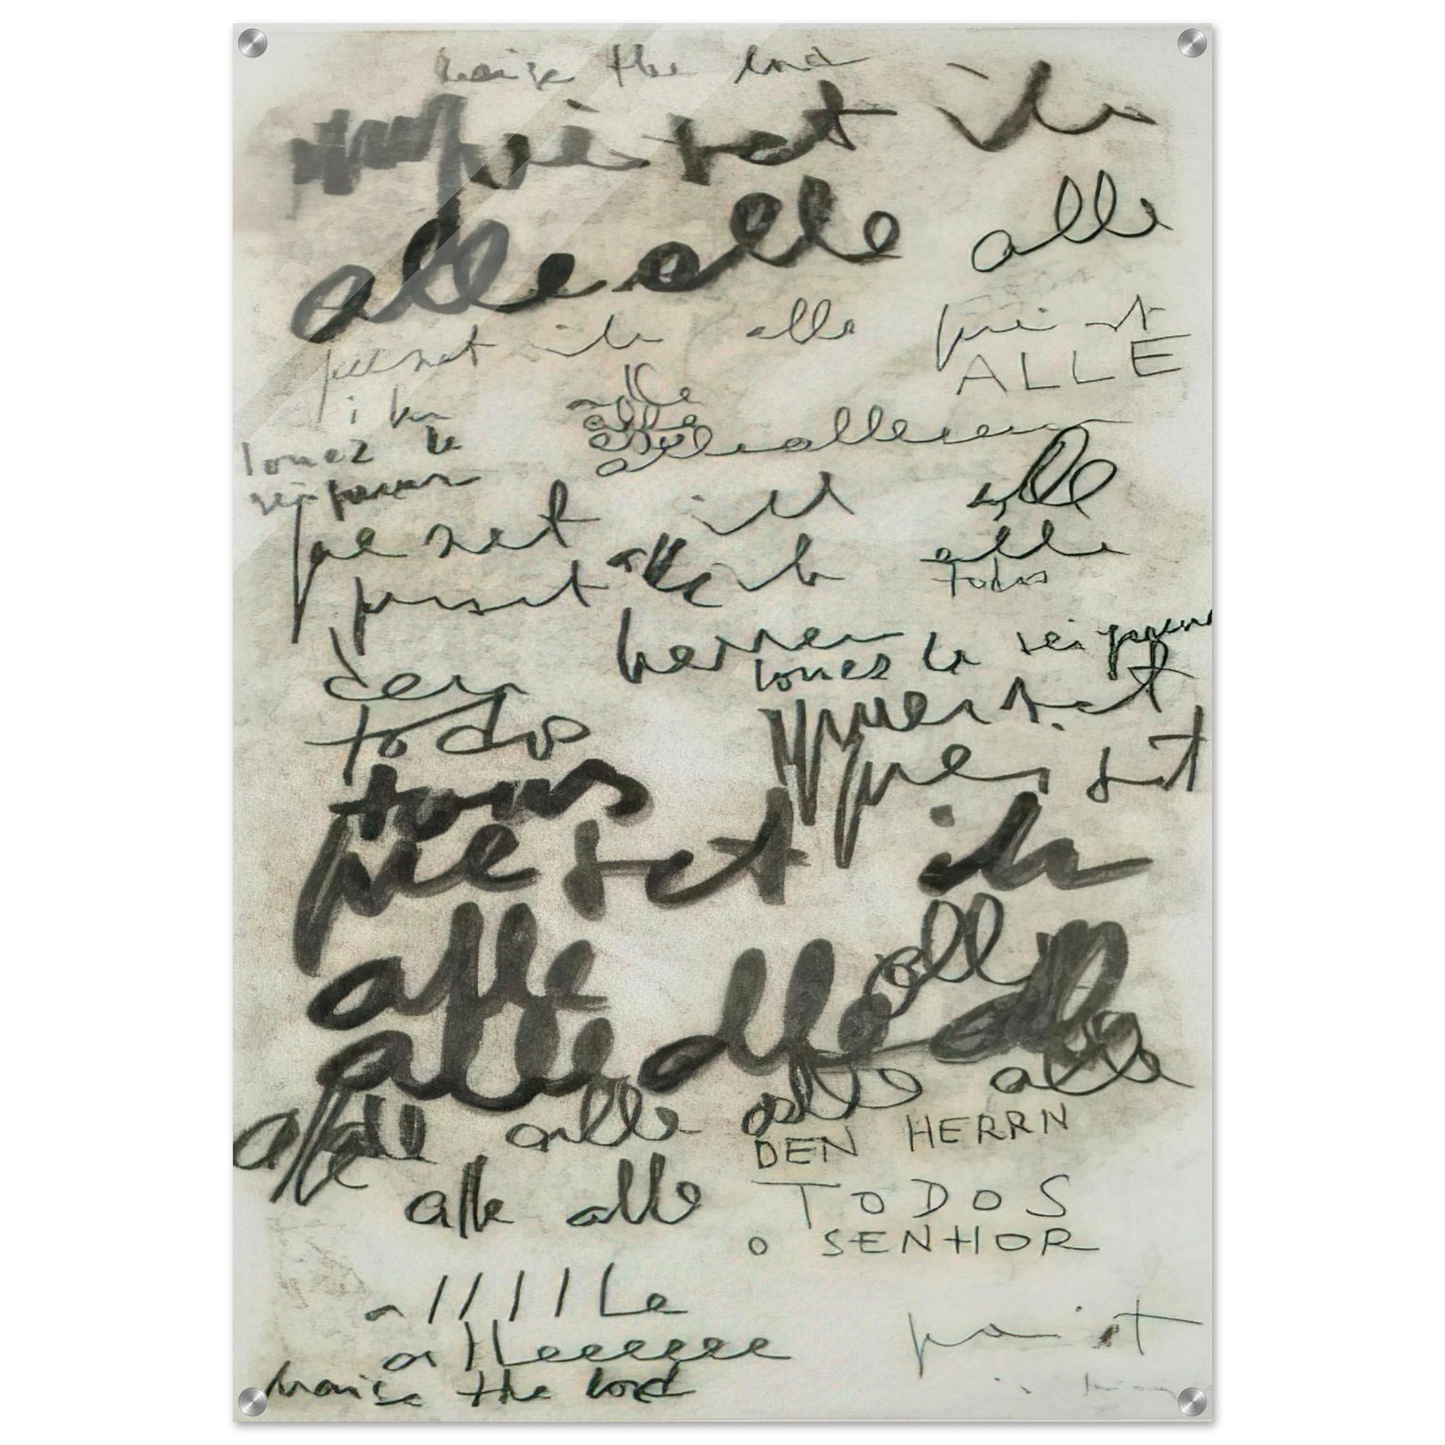 praise the lord
preiset ihn
alle alle alle
preiset ihn alle preist
ALLE
ihn alle
louez le alle
seigneur alle alleeeee
preiset ihn alle
preiset alle ihn alle
todos
herren louez le seigneur
den preiset
todos preiset
tous
preiset ihn
alle alle
alle alle alle
alle alle alle alle
DEN HERRN
alle alle
TODOS
O SENHOR
a l l l l l le
alleeeeeee preist
praise the lord